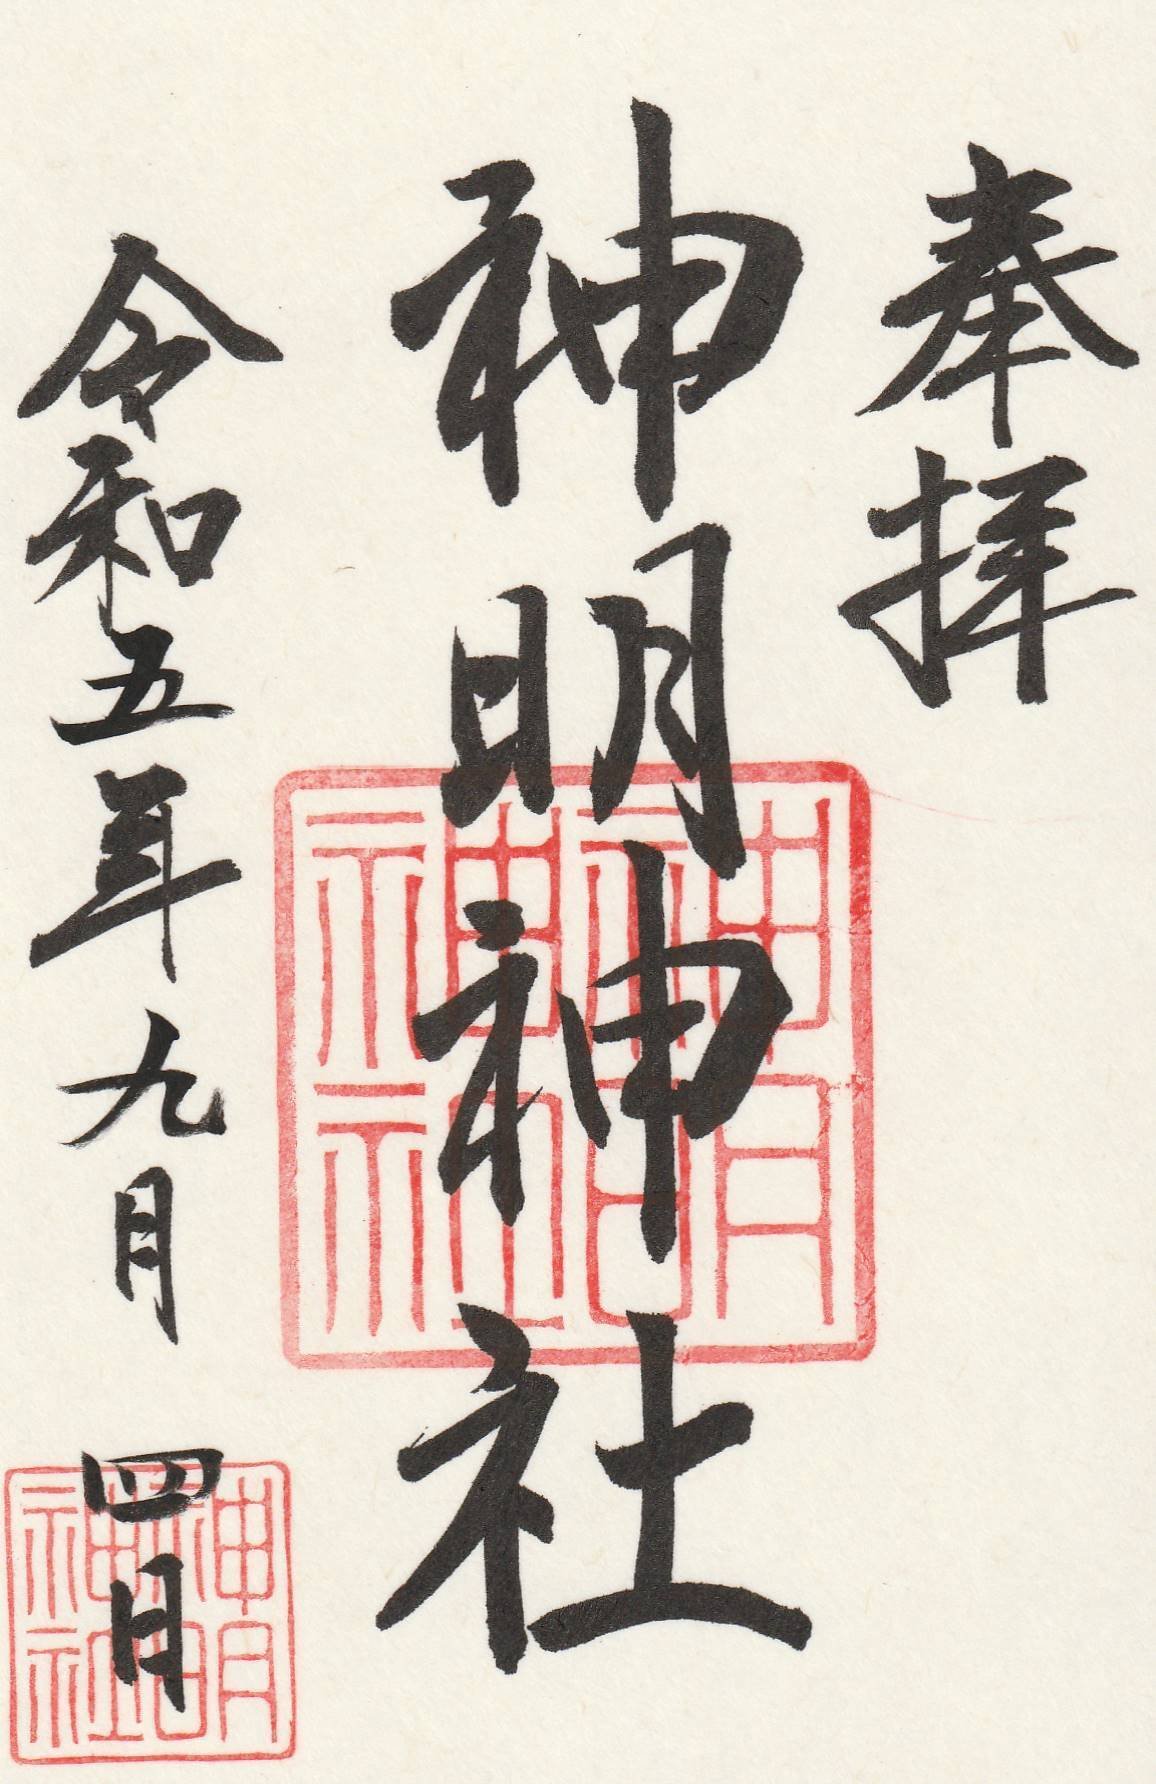 奉拝
神明神社
令和五年九月四日
神明神社
神明神社